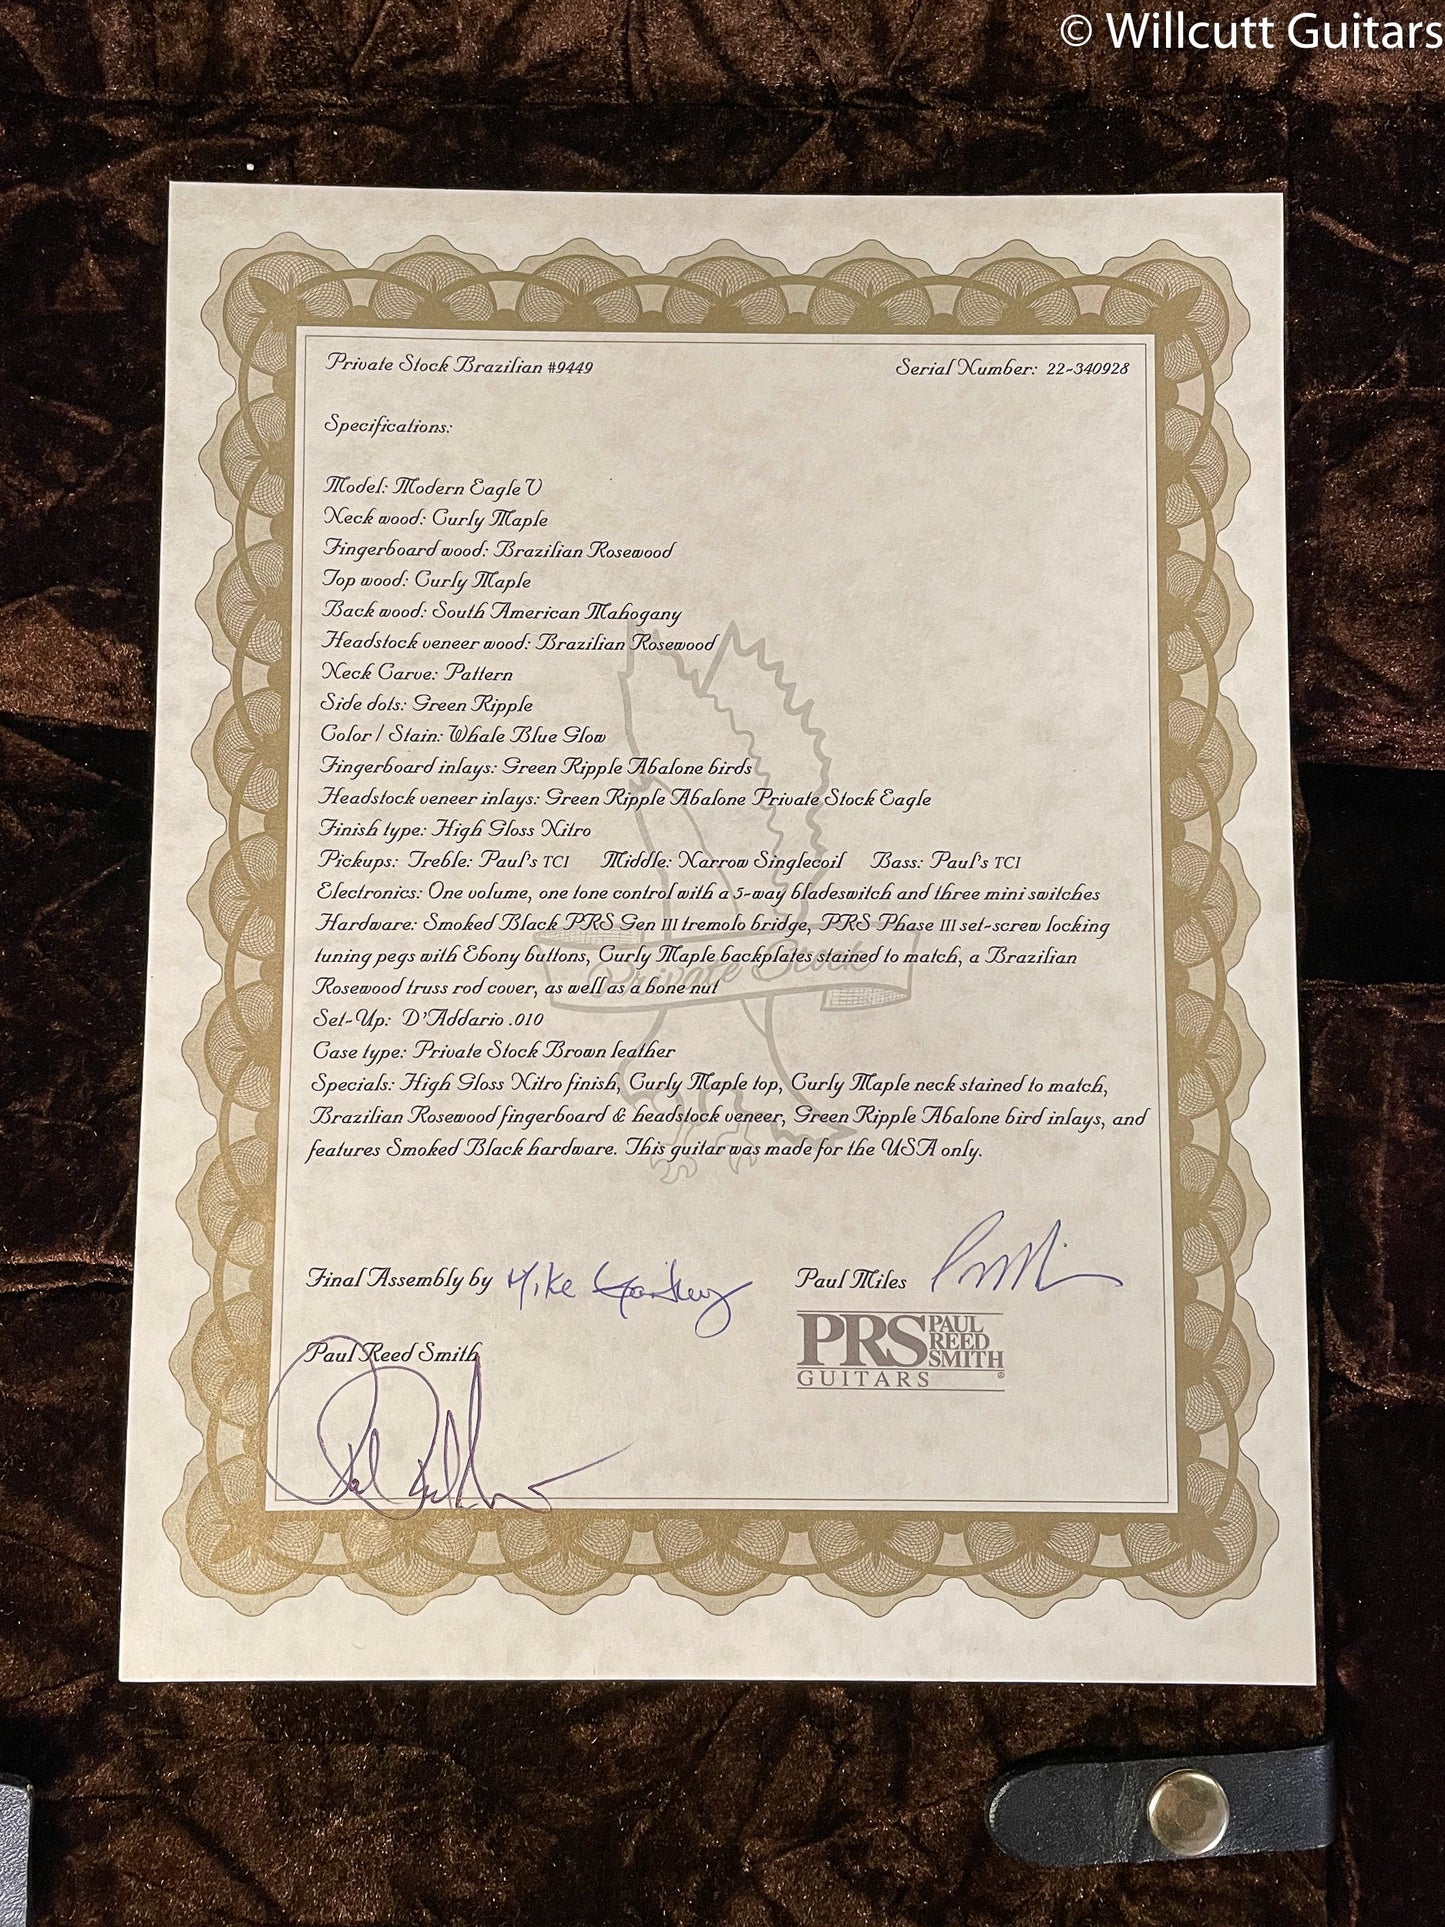 © Willcutt Guitars
Private Stock Brazilian #9449 Serial Number: 22-340928
Specifications:
Model: Modern Eagle V
Neck wood: Curly Maple
Fingerboard wood: Brazilian Rosewood
Top wood: Curly Maple
Back wood: South American Mahogany
Headstock veneer wood: Brazilian Rosewood
Neck Carve: Pattern
Side dots: Green Ripple
Color / Stain: Whale Blue Glow
Fingerboard inlays: Green Ripple Abalone birds
Headstock veneer inlays: Green Ripple Abalone Private Stock Eagle
Finish type: High Gloss Nitro
Pickups: Treble: Paul's TCI Middle: Narrow Singlecoil Bass: Paul's TCI
Electronics: One volume, one tone control with a 5-way bladeswitch and three mini switches
Hardware: Smoked Black PRS Gen III tremolo bridge, PRS Phase III set-screw locking
tuning pegs with Ebony buttons, Curly Maple backplates stained to match, a Brazilian
Private Stock
Rosewood truss rod cover, as well as a bone nut
Set-Up: D'Addario .010
Case type: Private Stock Brown leather
Specials: High Gloss Nitro finish, Curly Maple top, Curly Maple neck stained to match,
Brazilian Rosewood fingerboard & headstock veneer, Green Ripple Abalone bird inlays, and
features Smoked Black hardware. This guitar was made for the USA only.
Final Assembly by Mike Paul Miles
Paul Reed Smith
PRS PAUL
REED
SMITH
GUITARS ®